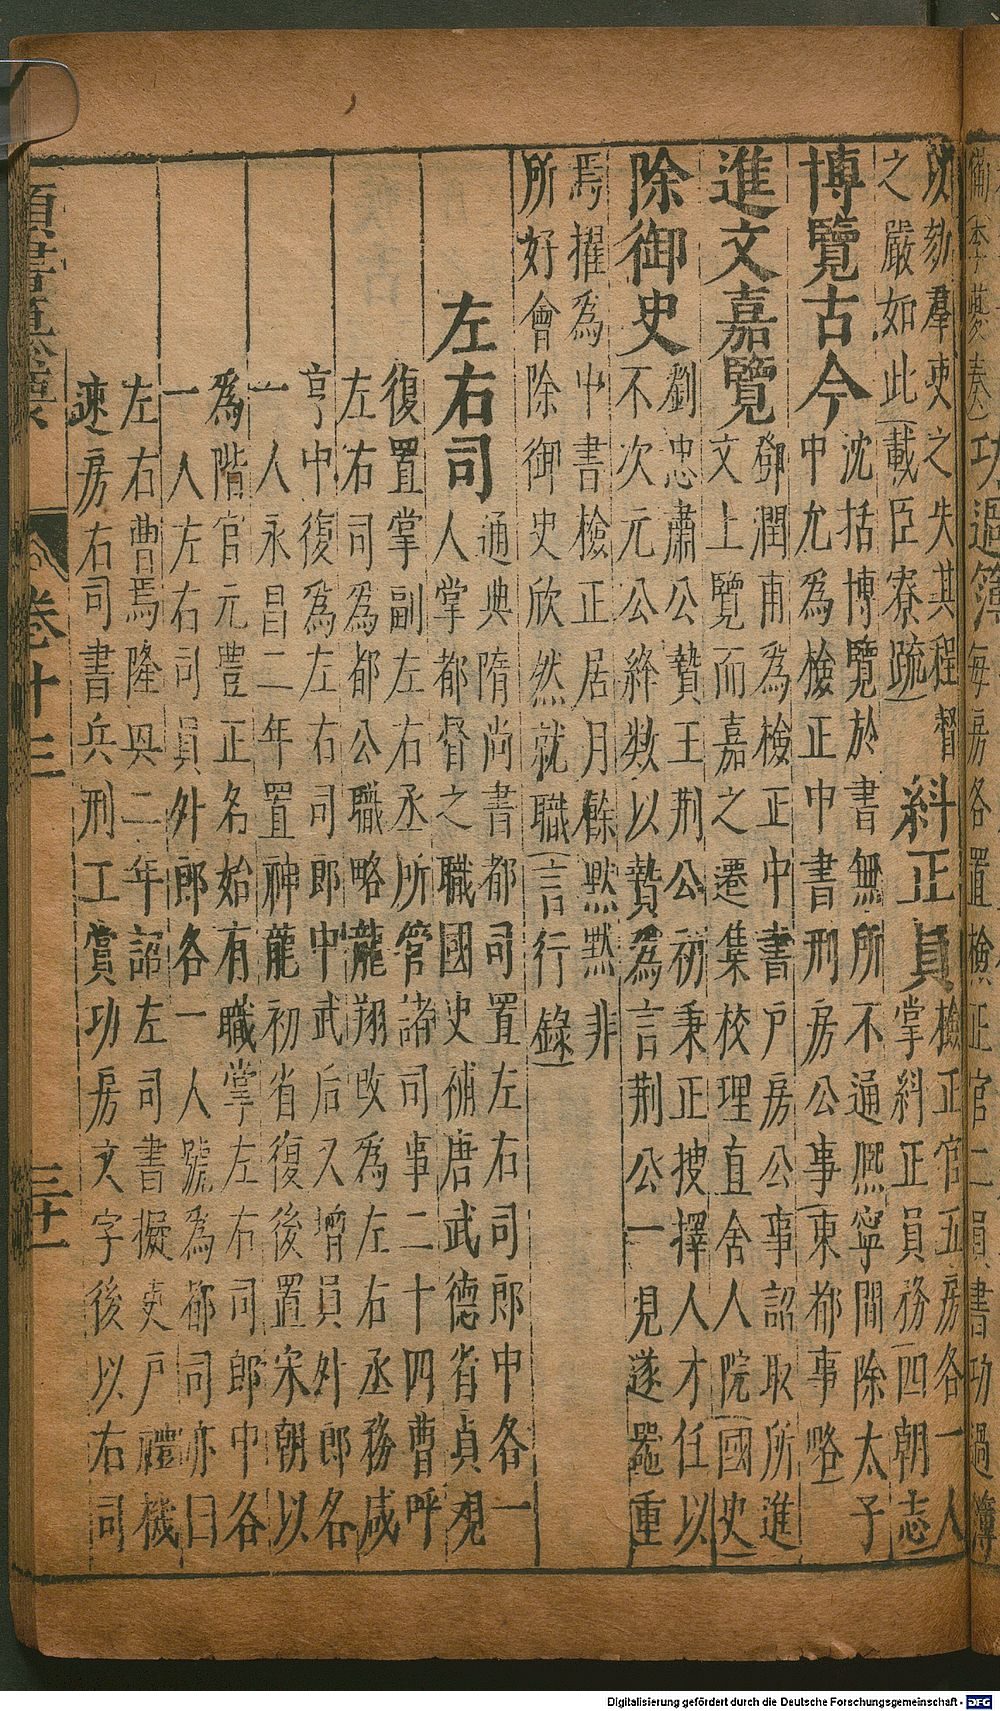 攷劾羣吏之失其程督
之嚴如此載臣寮疏
糾正員
檢正官五房各一人
掌糾正員務四朝志
博覽古今
沈括博覽於書無所不通熈寧間除太子
中允為檢正中書刑房公事東都事略
進文嘉覽
鄧潤甫為檢正中書戶房公事詔取所進
文上覽而嘉之遷集校理直舍人院國史
除御史
劉忠肅公贄王荆公初秉正披擇人才任以
不次元公絳数以贄為言荆公一見遂噐重
焉擢為中書檢正居月餘默默非
所好會除御史欣然就職言行錄
左右司
通典隋尚書都司置左右司郎中各一
人掌都督之職國史補唐武德省貞觀
復置掌副左右丞所管諸司事二十四曹呼
左右司為都公職略龍翔改為左右丞務咸
亨中復為左右司郎中武后又增員外郎各
一人永昌二年置神龍初省復後置宋朝以
為階官元豐正名始有職掌左右司郎中各
一人左右司員外郎各一人號為都司亦曰
左右曹焉隆興二年詔左司書擬吏戶禮機
速房右司書兵刑工賞功房文字後以右司
卷十三
三十一
功過簿
每房各置檢正官二員書功過簿
Digitalisierung gefördert durch die Deutsche Forschungsgemeinschaft - DFG